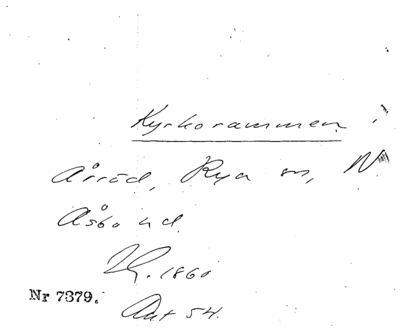 Kyrkorammen i
Årröd, Rya sn, N
Åsbo hd.
1860
Nr 7379.
Ant 54.